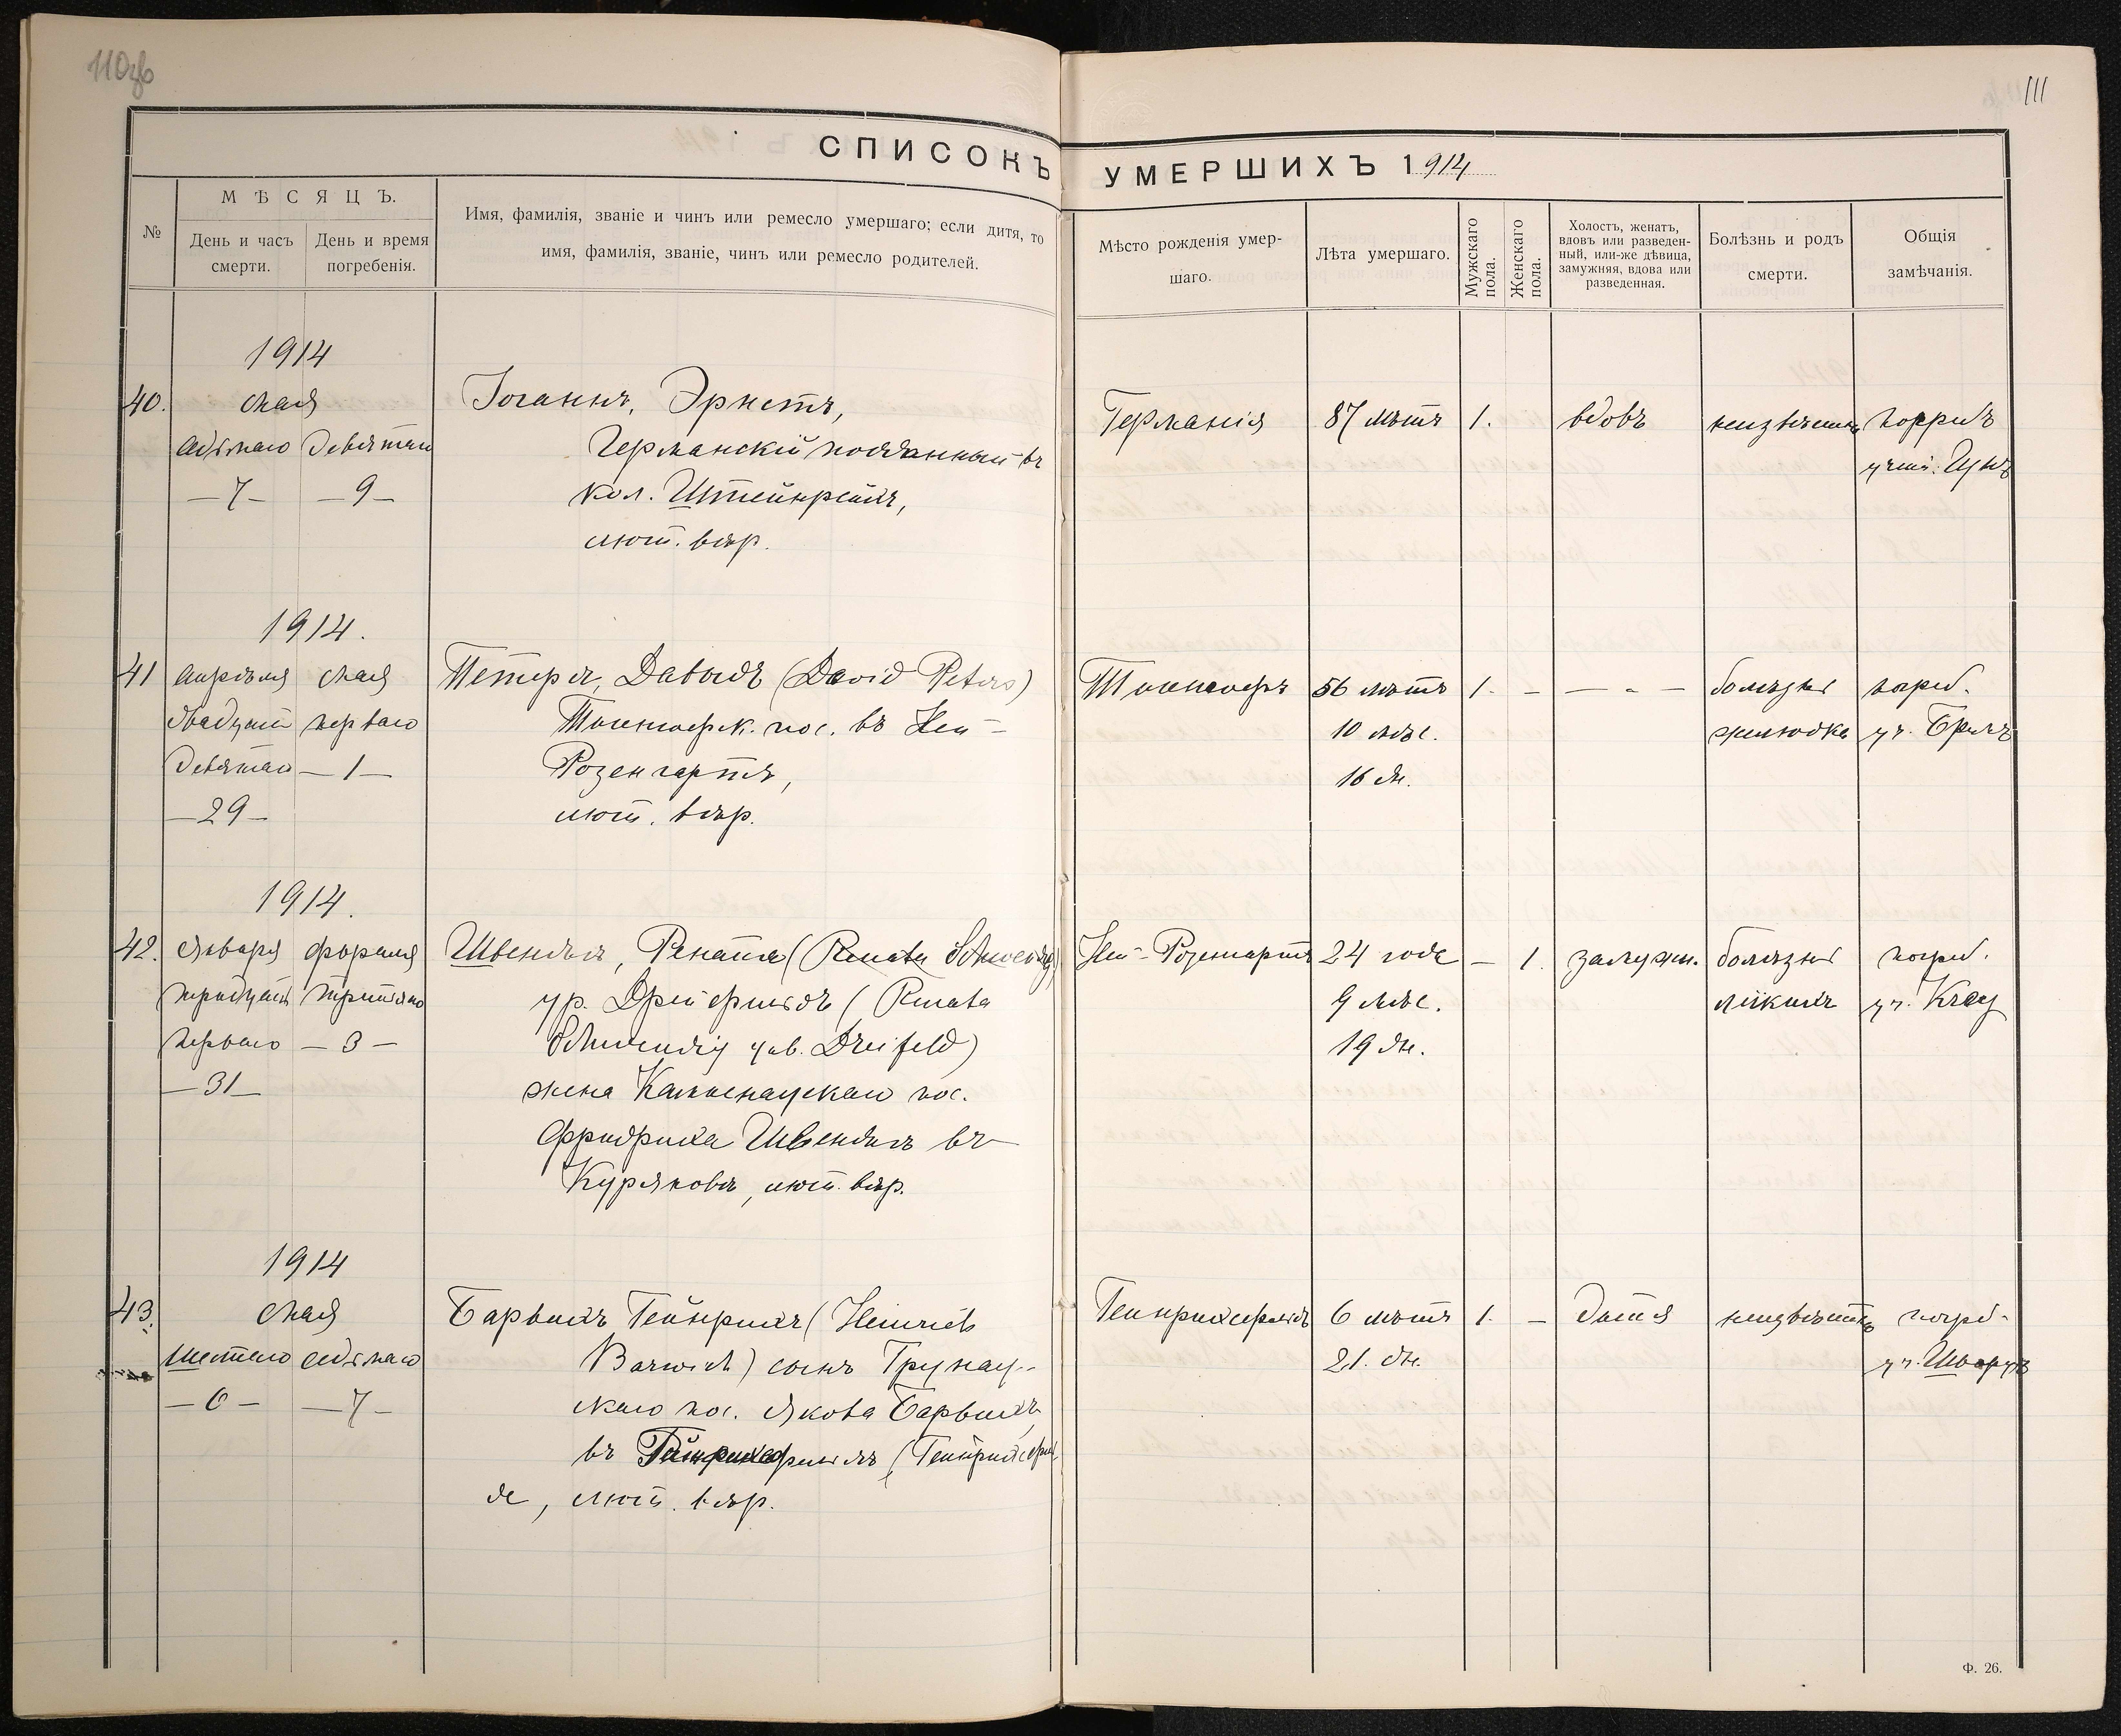 110об
111
СПИСОКЪ УМЕРШИХЪ 1914
№
МѢСЯЦЪ.
День и часъ смерти.
День и время погребенія.
Имя, фамилія, званіе и чинъ или ремесло умершаго; если дитя, то
имя, фамилія, званіе, чинъ или ремесло родителей.
Мѣсто рожденія умер-
шаго.
Лѣта умершаго.
Мужскаго пола.
Женскаго пола.
Холостъ, женатъ,
вдовъ или разведен-
ный, или-же дѣвица,
замужняя, вдова или
разведенная.
Болѣзнь и родъ
смерти.
Общія
замѣчанія.
1914
40. Мая Іоганнъ, Эрнстъ, Германія 87 лѣтъ 1. вдовъ
седьмаго девятаго Германскій подданный въ
—7— —9— кол. Штейнрейхъ,
лют. вѣр.
1914.
41 Апрѣля Мая Петерсъ, Давыдъ (David Peters) 56 лѣтъ 1. — — - — болѣзнь погреб.
двадцать перваго пос. въ Ней- 10 мѣс. желудка уч.
девятаго —1— Розенгартъ, 16 дн.
—29— лют. вѣр.
1914.
42. Января Февраля Швендихъ, Рената (Renata Schwendig) Ней-Розенгартъ 24 года — 1. замужн. болѣзнь погреб.
тридцать третьяго ур. Дрейфельдъ (Renata 9 мѣс. лёкихъ уч.
перваго —3— Schwendig geb. Dreifeld) 19 дн.
—31— жена Кампенаускаго пос.
Фридриха Швендихъ въ
Куряковѣ, лют. вѣр.
1914
43. Мая Барвихъ Гейнрихъ (Heinrich Гейнрихсфельдъ 6 лѣтъ 1. — дитя погреб.
шестаго седьмаго Barwich) сынъ Грунау- 21. дн. уч. Шварцъ
—6— —7— скаго пос. Якова Барвихъ,
въ (Гейнрихсфель
дѣ, лют. вѣр.
Ф. 26.